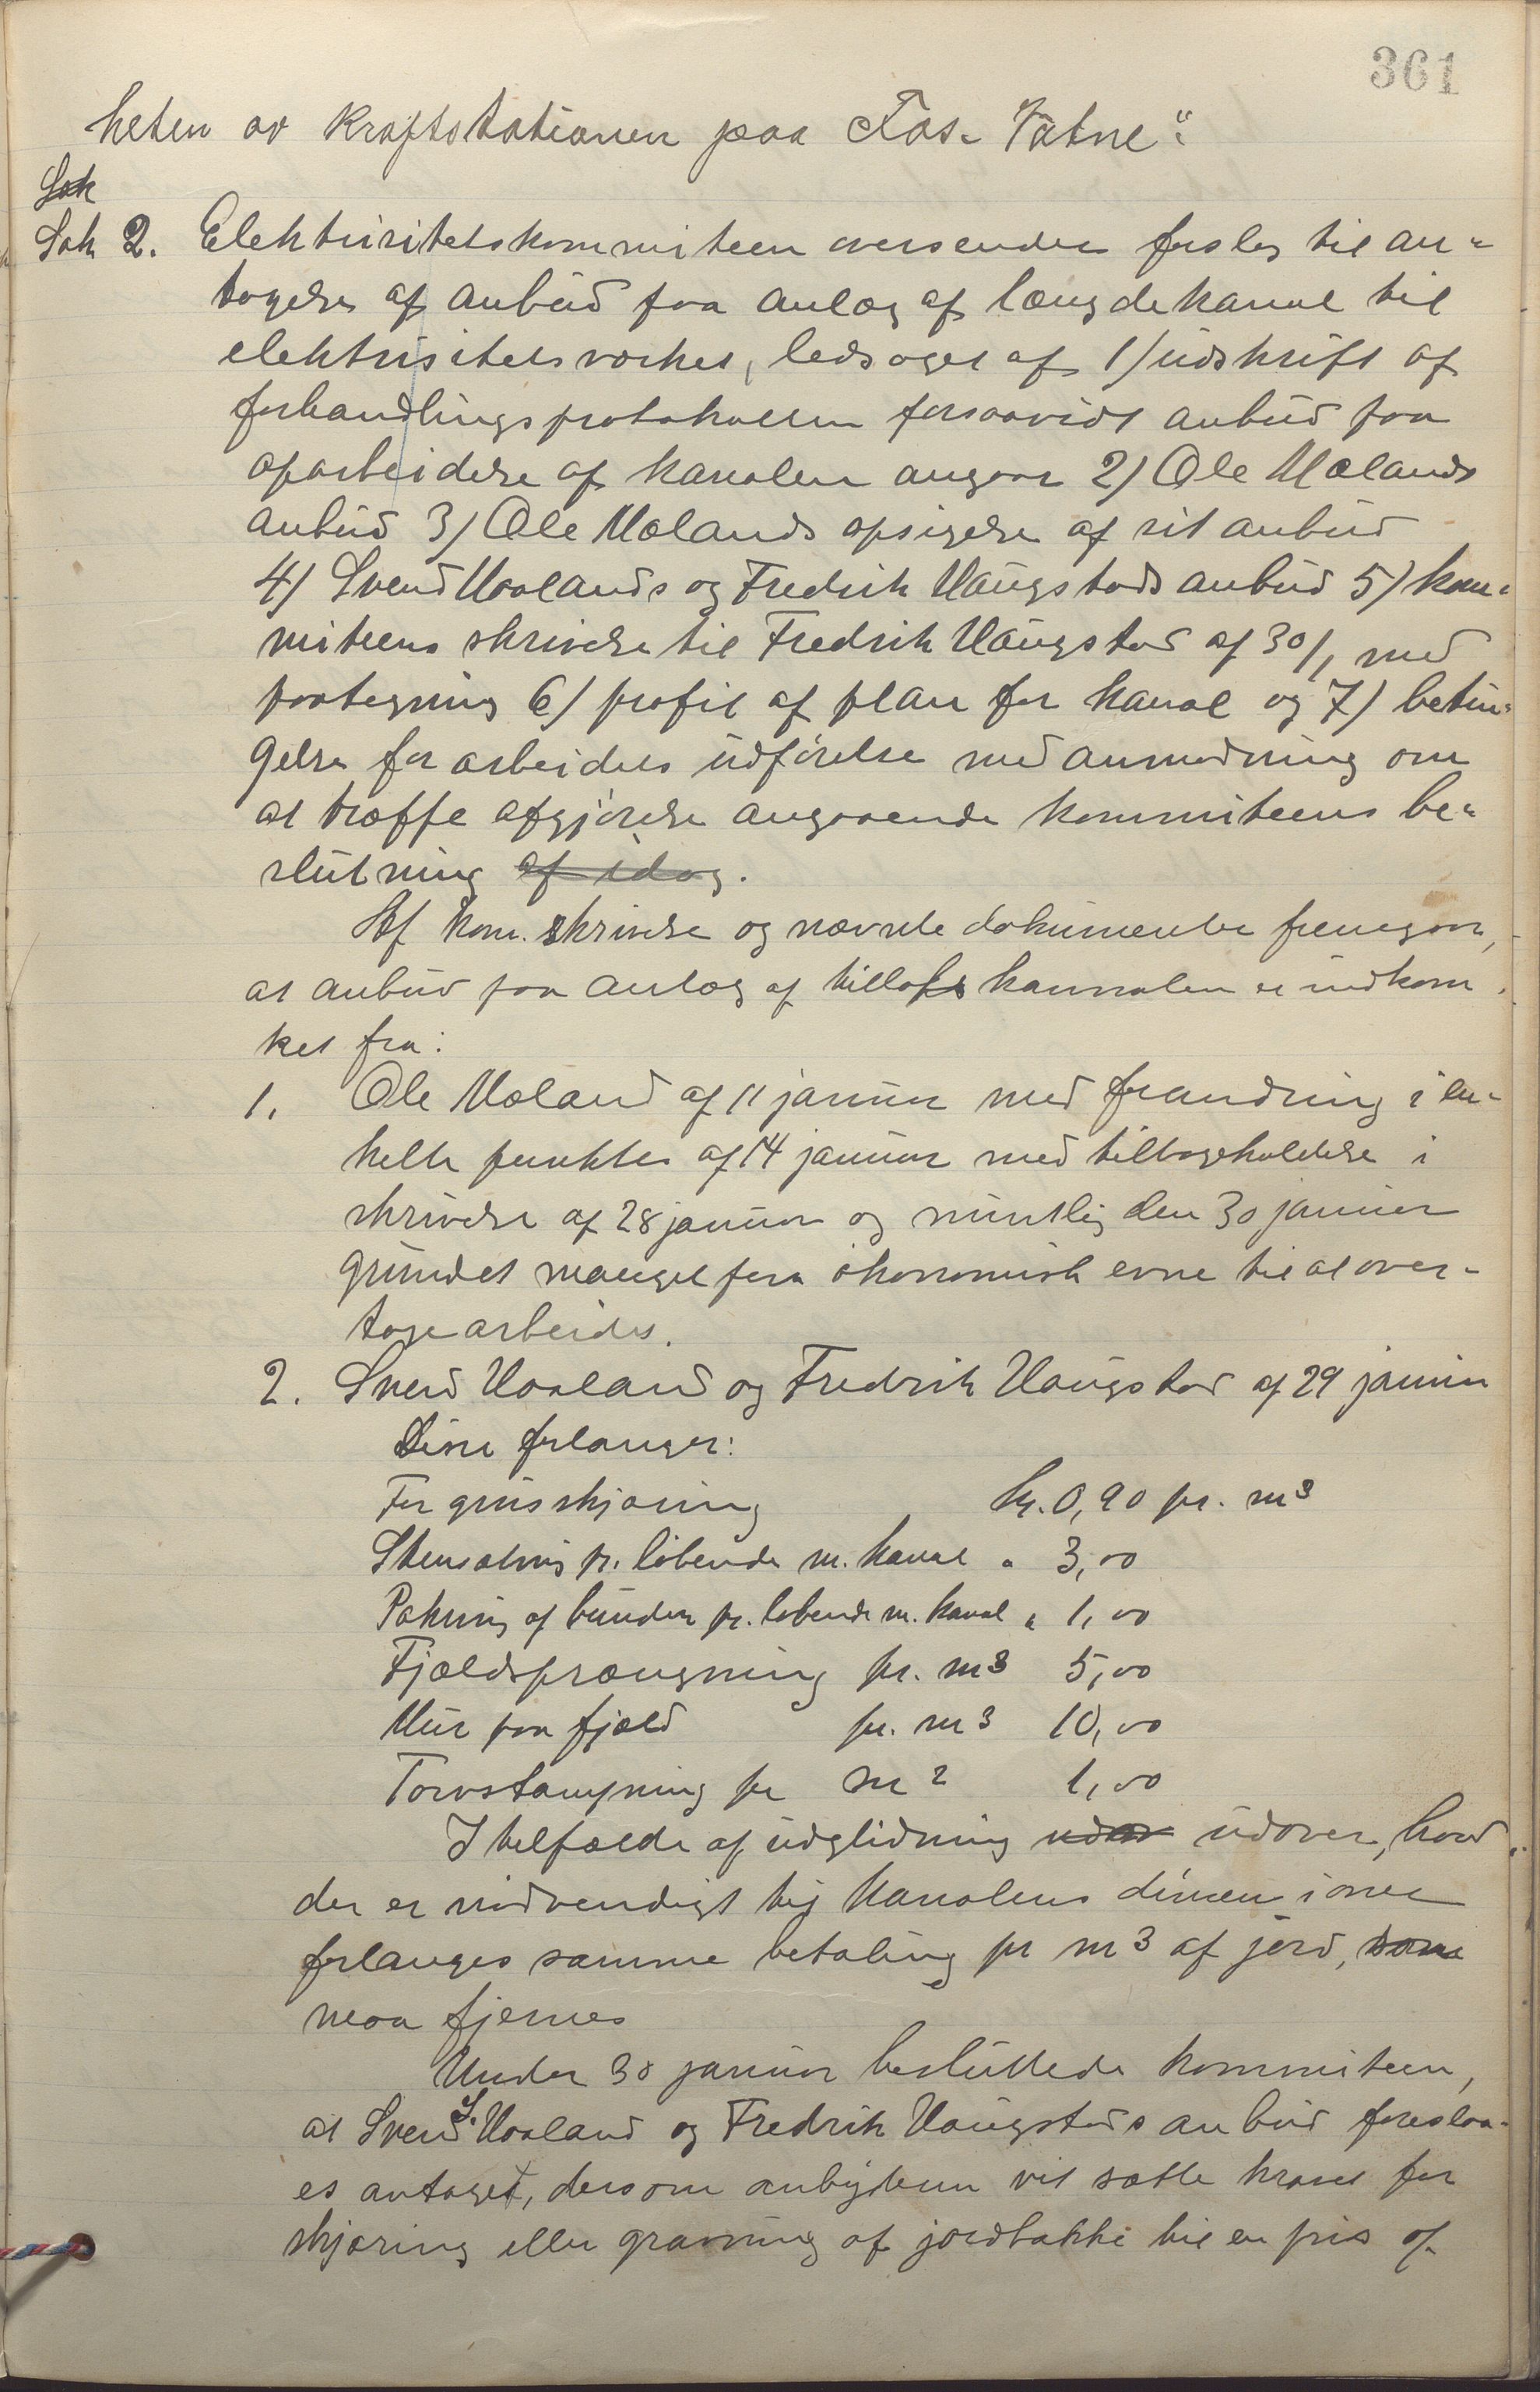 361
heten av kraftstationen paa Fos-Vatne".
Sak
Sak 2. Elektrisitetskommiteen oversender forslag til an-
tagelse af anbud paa anlæg af længdekanal til
elektrisitetsværket, ledsaget af 1) udskrift af
forhandlingsprotokollen forsaavidt anbud paa
oparbeidelse af kanalen angaar 2) Ole Mælands
anbud 3) Ole Mælands opsigelse af sit anbud
4) Svend Haalands og Fredrik Haugstads anbud 5) kom-
miteens skrivelse til Fredrik Haugstad af 30/1 med
paategning 6) profil af plan for kanal og 7) betin-
gelse for arbeidets udførelse med anmodning om
at træffe afgjørelse angaaende kommiteens be-
slutning af idag.
Af kom. skrivelse og nævnte dokumenter fremgaar,
at anbud paa anlæg af tilløbs kannalen er indkom
ket fra:
1. Ole Mæland af 11 januar med forandring i en-
kelte punkter af 14 januar med tilbageholdelse i
skrivelse af 28 januar og mundtlig den 30 januar
grundet mangel paa økonomisk evne til at over-
tage arbeidet.
2. Svend Haaland og Fredrik Haugstad af 29 januar
Disse forlanger:
For grusskjæring kr. 0,90 pr. m3
Stensætning pr. løbende m. kanal " 3,00
Pakning af bunden pr. løbende m. kanal " 1,00
Fjældsprængning pr. m3 5,00
Mur paa fjæld pr. m3 10,00
Torvstampning pr m2 1,00
I tilfælde af udglidning udov udover, hvad
der er nødvendigt til kanalens dimensioner
forlanges samme betaling pr m3 af jord, som
maa fjernes
Under 30 januar besluttede kommiteen,
at Svend S. Haaland og Fredrik Haugstads anbud foreslaa-
es antaget, dersom anbyderne vil sætte kravet for
skjæring eller gravning af jordbakke til en pris af